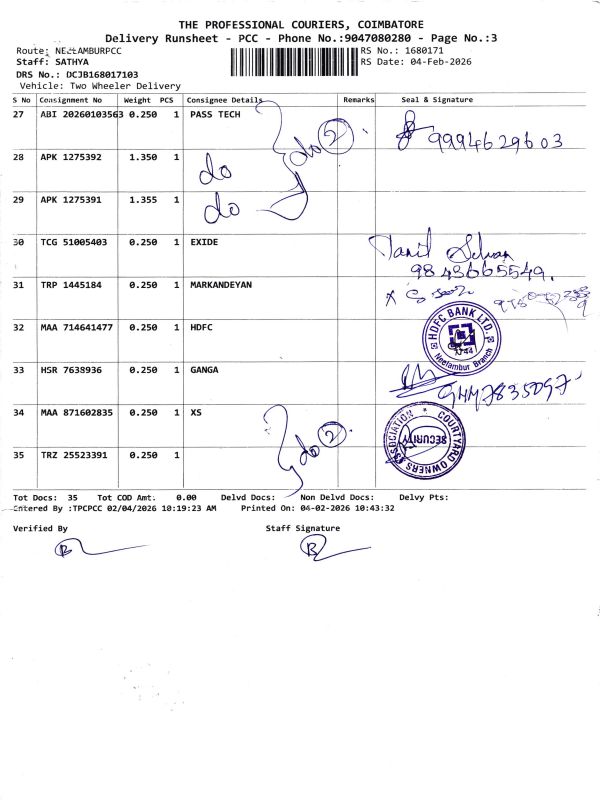 THE PROFESSIONAL COURIERS, COIMBATORE
Delivery Runsheet - PCC - Phone No.:9047080280 - Page No.:3
Route: NEELAMBURPCC
RS No.: 1680171
Staff: SATHYA
RS Date: 04-Feb-2026
DRS No.: DCJB168017103
Vehicle: Two Wheeler Delivery
S No Consignment No Weight PCS Consignee Details Remarks Seal & Signature
27 ABI 20260103563 0.250 1 PASS TECH
do 2
9994629603
28 APK 1275392 1.350 1 do
29 APK 1275391 1.355 1 do
30 TCG 51005403 0.250 1 EXIDE
Tamil Selvan
9843665549.
31 TRP 1445184 0.250 1 MARKANDEYAN
32 MAA 714641477 0.250 1 HDFC
HDFC BANK LTD.
Neelambur Branch
33 HSR 7638936 0.250 1 GANGA
9447835097
34 MAA 871602835 0.250 1 XS
do 2
COURTYARD OWNERS ASSOCIATION
SECURITY
35 TRZ 25523391 0.250 1
Tot Docs: 35 Tot COD Amt. 0.00 Delvd Docs: Non Delvd Docs: Delvy Pts:
Entered By :TPCPCC 02/04/2026 10:19:23 AM Printed On: 04-02-2026 10:43:32
Verified By Staff Signature